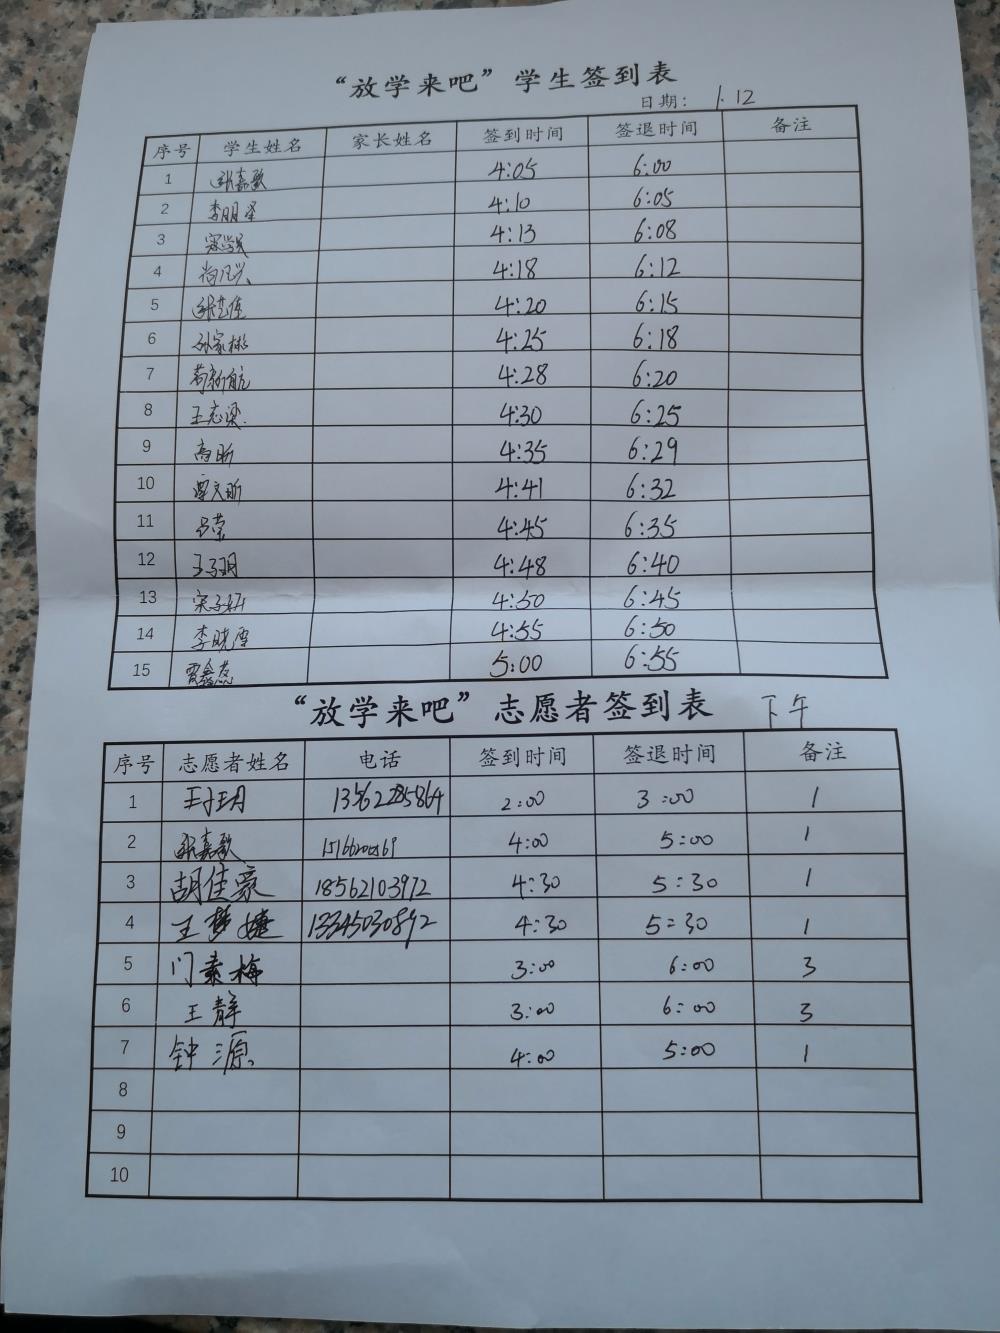 “放学来吧”学生签到表
日期： 1.12
序号 学生姓名 家长姓名 签到时间 签退时间 备注
1 张嘉歌 4:05 6:00
2 李明泽 4:10 6:05
3 4:13 6:08
4 尚凡兴 4:18 6:12
5 张艺佳 4:20 6:15
6 孙家彬 4:25 6:18
7 苟新航 4:28 6:20
8 王志梁 4:30 6:25
9 高昕 4:35 6:29
10 文昕 4:41 6:32
11 吕荣 4:45 6:35
12 王子玥 4:48 6:40
13 宋子妍 4:50 6:45
14 李晓雪 4:55 6:50
15 鑫蕊 5:00 6:55
“放学来吧”志愿者签到表 下午
序号 志愿者姓名 电话 签到时间 签退时间 备注
1 王子玥 2:00 3:00 1
2 张嘉歌 4:00 5:00 1
3 胡佳豪 18562103972 4:30 5:30 1
4 王梦婕 13345030892 4:30 5:30 1
5 门素梅 3:00 6:00 3
6 王静 3:00 6:00 3
7 钟源 4:00 5:00 1
8
9
10